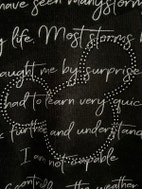 have seen many storms
my life. Most storms
aught me by surprise
had to learn very quic
further and understand
I am not capable